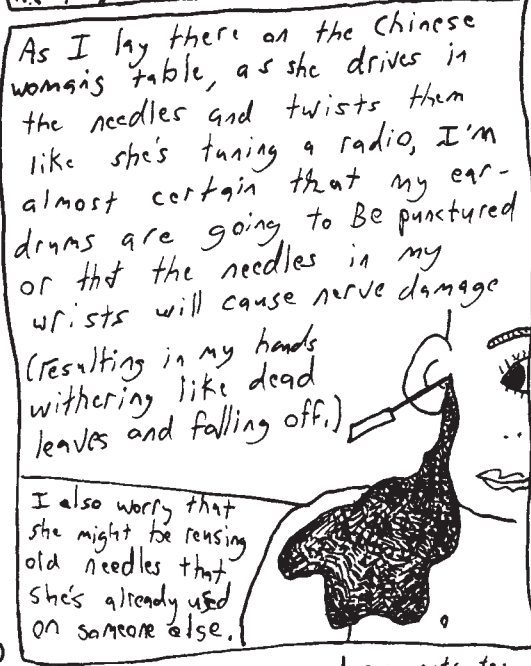 As I lay there on the Chinese
woman's table, as she drives in
the needles and twists them
like she's tuning a radio, I'm
almost certain that my ear-
drums are going to Be punctured
or that the needles in my
wrists will cause nerve damage
(resulting in my hands
withering like dead
leaves and falling off.)
I also worry that
she might be reusing
old needles that
she's already used
on someone else.